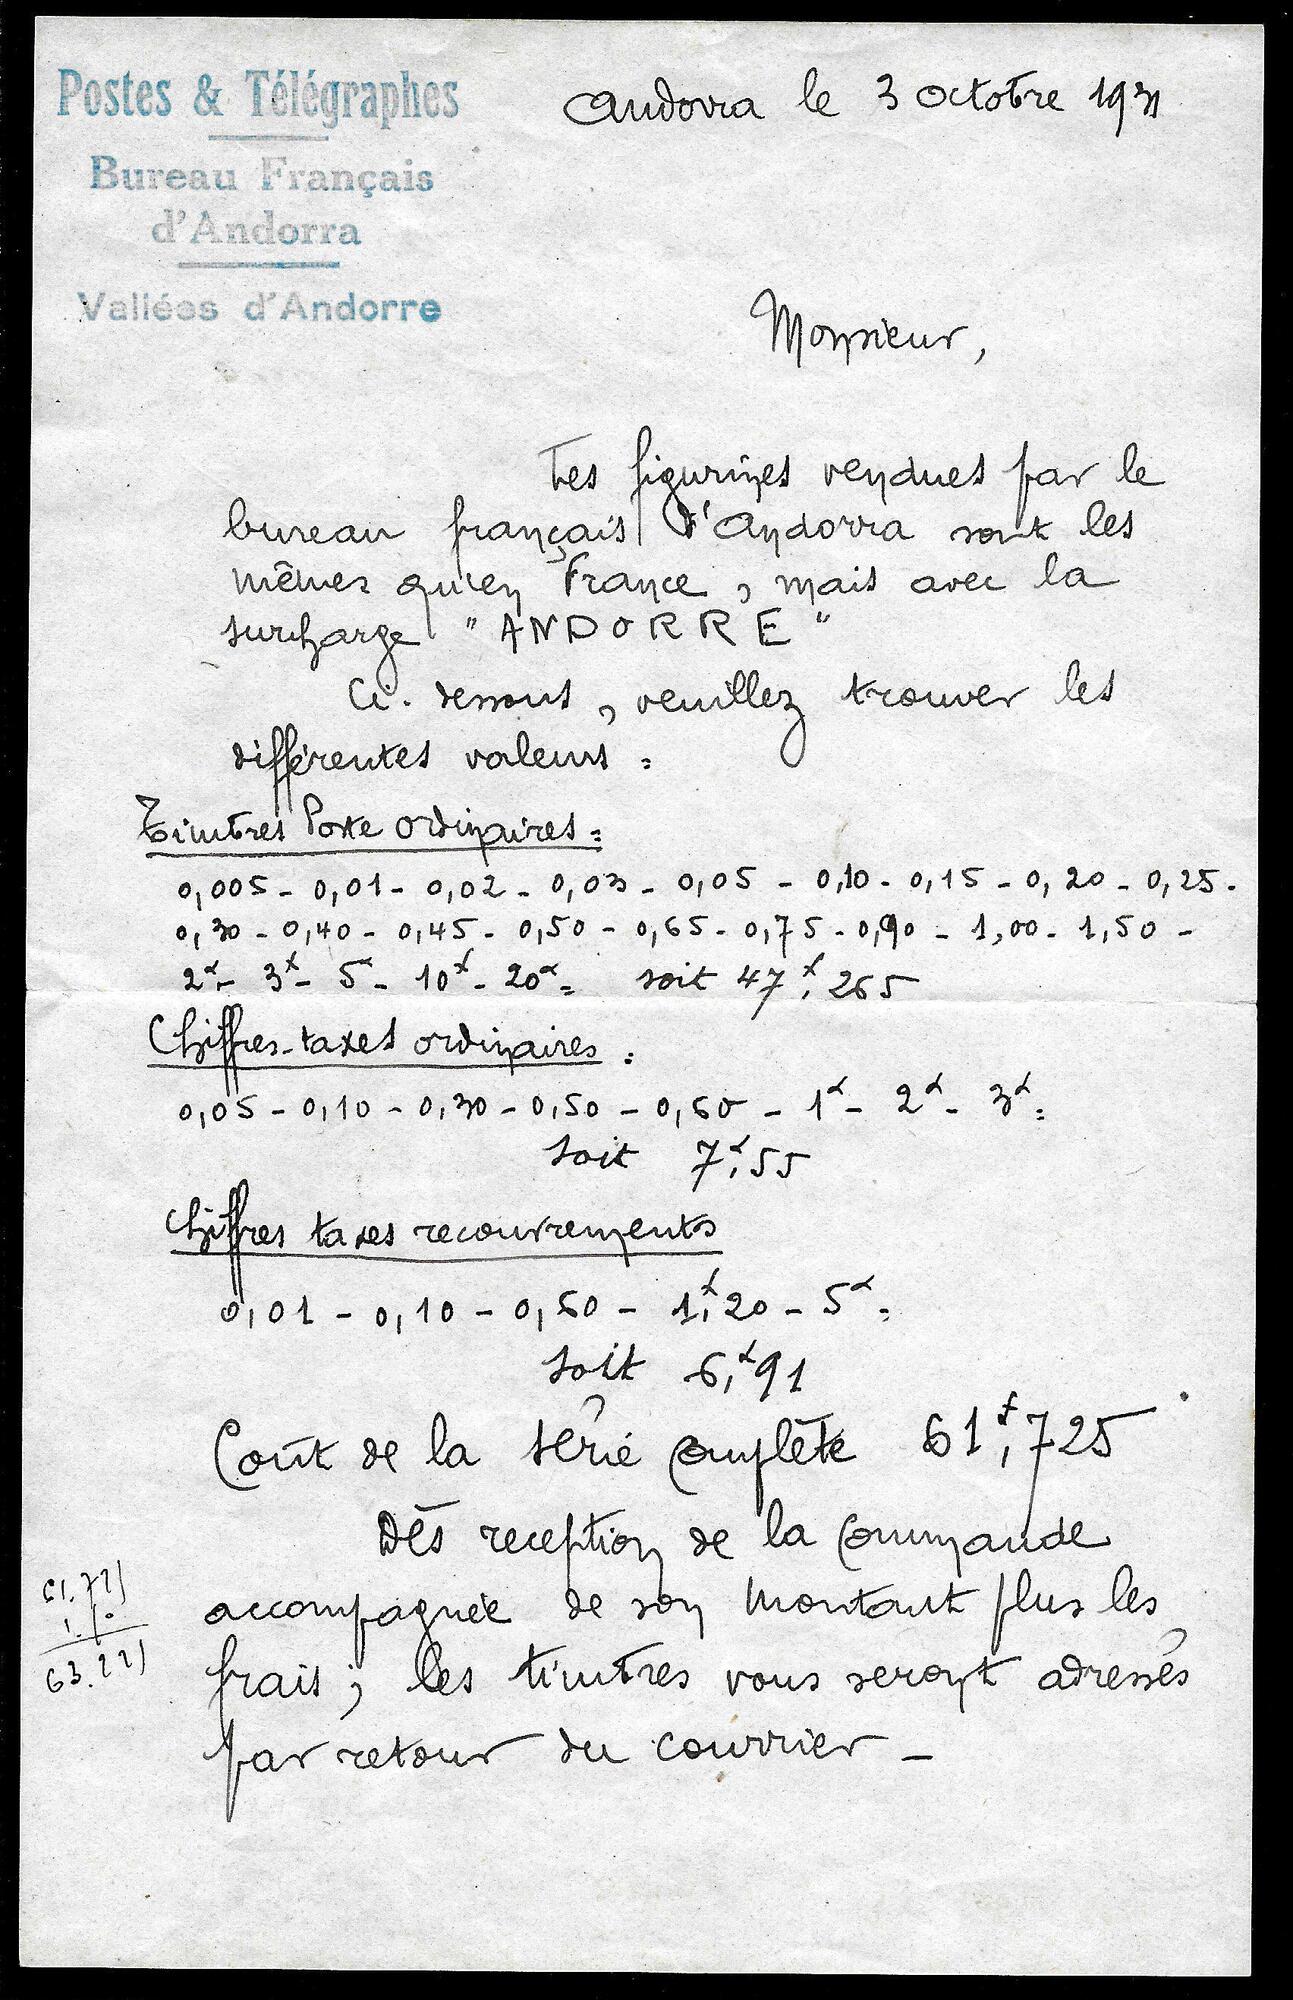 Postes & Télégraphes
Bureau Français
d'Andorra
Vallées d'Andorre
Andorra le 3 Octobre 1931
Monsieur,
Les figurines vendues par le
bureau français d'Andorra sont les
mêmes qu'en France, mais avec la
surcharge "ANDORRE"
Ci-dessous, veuillez trouver les
différentes valeurs:
Timbres Poste ordinaires:
0,005 - 0,01 - 0,02 - 0,03 - 0,05 - 0,10 - 0,15 - 0,20 - 0,25 -
0,30 - 0,40 - 0,45 - 0,50 - 0,65 - 0,75 - 0,90 - 1,00 - 1,50 -
2f - 3f - 5f - 10f - 20f = soit 47f,265
Chiffres-taxes ordinaires:
0,05 - 0,10 - 0,30 - 0,50 - 0,60 - 1f - 2f - 3f =
soit 7f,55
Chiffres taxes recouvrements
0,01 - 0,10 - 0,60 - 1f,20 - 5f =
soit 6f,91
Coût de la série complète 61f,725
Dès réception de la commande
accompagnée de son montant plus les
frais; les timbres vous seront adressés
par retour du courrier -
61.725
1.50
63.225